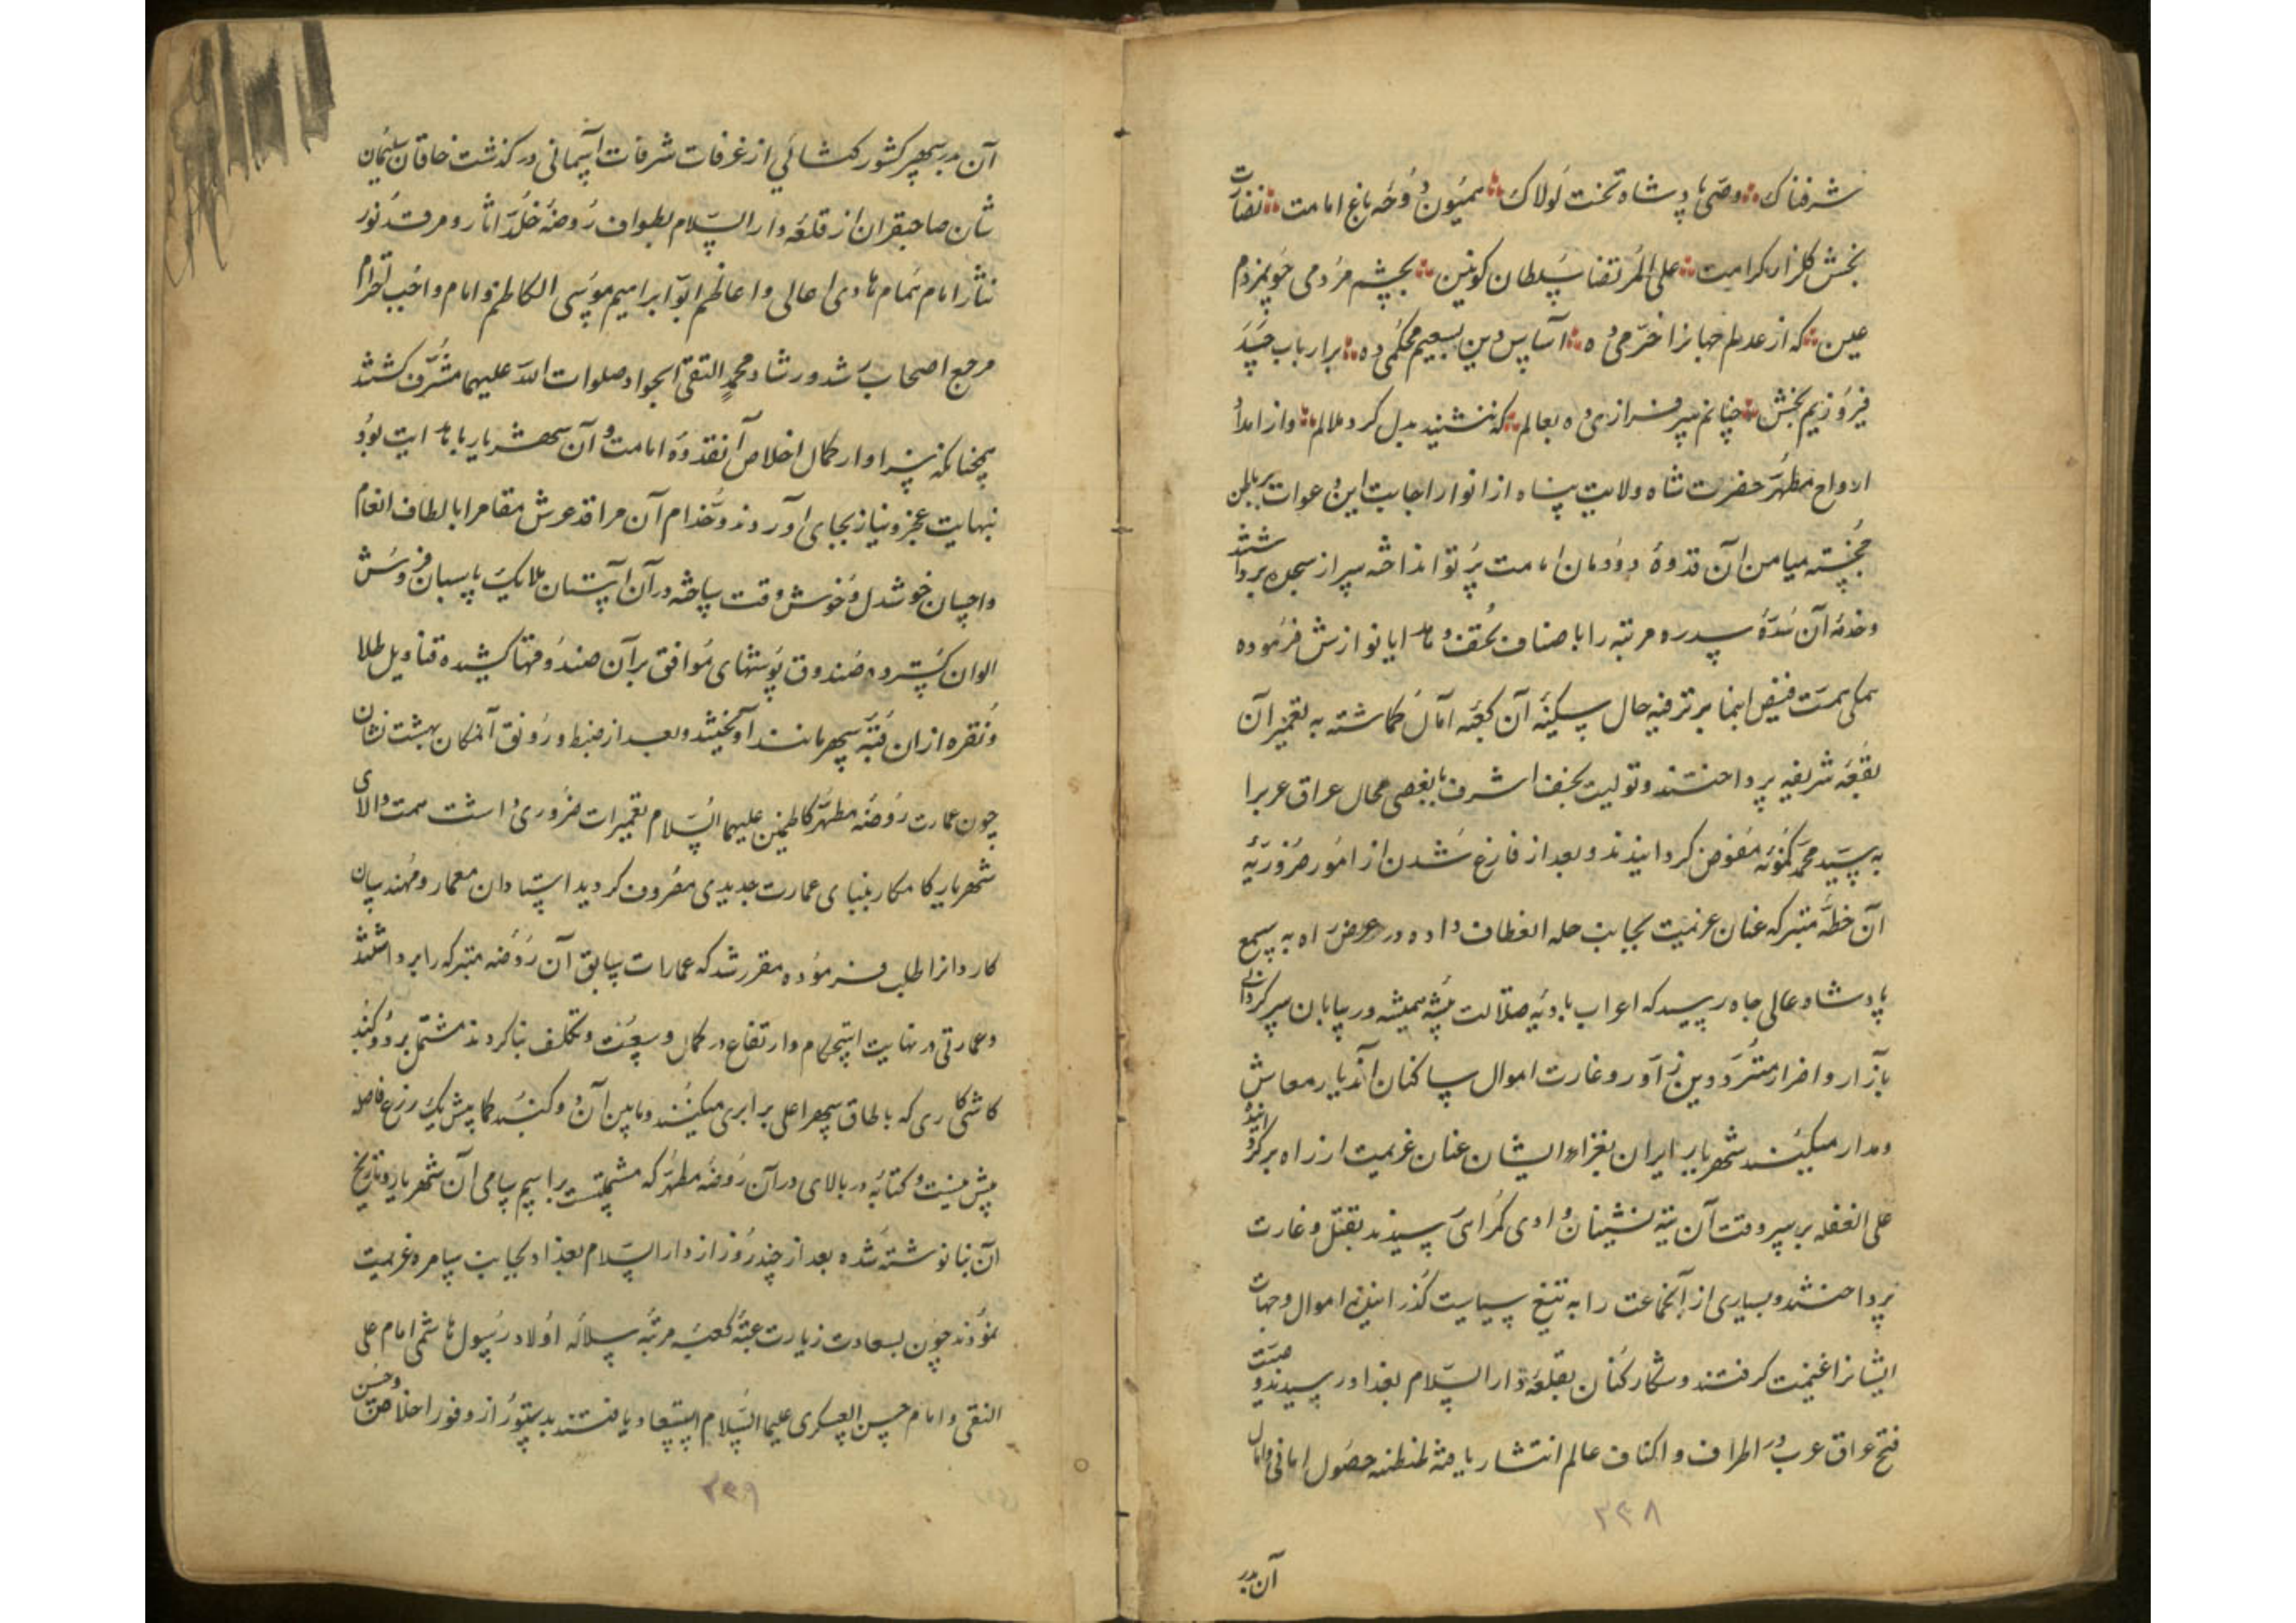 شرفناک وصی پادشاه تخت لولاک همیون دوحه باغ امامت نضارت
بخش گلزار کرامت علی المرتضا سلطان کونین بچشم مردمی چو مردم
عین که از عدلم جهانرا خرمی ده اساس دین بسعیم محکمی ده بر ارباب حسد
فیروزیم بخش چنانم سرفرازی ده بعالم که ننشیند بدل گرد ملالم و از امداد
ارواح مطهر حضرت شاه ولایت پناه از انوار اجابت این دعوات بر باطن
خجسته میامن آن قدوهٔ دودمان امامت پرتو انداخته سر از سجده برداشتند
و خدمهٔ آن سدهٔ سدره مرتبه را باصناف تحف و هدایا نوازش فرموده
همگی همت فیض انما بر ترفیه حال سکنهٔ آن کعبه آمال گماشته به تعمیر آن
بقعه شریفه پرداختند و تولیت نجف اشرف با بعضی محال عراق عرب را
به سید محمد کمونه مفوض گردانیدند و بعد از فارغ شدن از امور ضروریهٔ
آن خطهٔ متبرکه عنان عزیمت بجانب حله انعطاف داده در عرض راه به سمع
پادشاه عالی جاه رسید که اعراب بادیه ضلالت پیشه همیشه در بیابان سرگردانی
بآزار و اضرار مترددین زآور و غارت اموال ساکنان آندیار معاش
و مدار میکنند شهریار ایران بغزاء ایشان عنان عزیمت از راه برگردانیده
علی الغفله بر سر وقت آن تیه نشینان وادی گمراهی رسیدند بقتل و غارت
پرداختند و بسیاری از آنجماعت را به تیغ سیاست گذرانیده اموال و جهات
ایشانرا غنیمت گرفتند و شکار کنان بقلعه دار السلام بغداد رسیدند و صیت
فتح عراق عرب در اطراف و اکناف عالم انتشار یافته طنطنه حصول امانی و امال
۲۳۸
آن بدر
آن بدر سپهر کشور گشائی از غرفات شرفات آسمانی در گذشت خاقان سلیمان
شان صاحبقران از قلعه دار السلام بطواف روضهٔ خلد اثار و مرقد نور
نثار امام همام هادی اعالی و اعاظم ابو ابراهیم موسی الکاظم و امام واجب احترام
مرجع اصحاب رشد و رشاد محمد التقی الجواد صلوات الله علیهما مشرف گشتند
چنانکه سزاوار کمال اخلاص آنقدوهٔ امامت و آن شهریار با هدایت بود
نهایت عجز و نیاز بجای آوردند و خدام آن مراقد عرش مقام را بالطاف انعام
و احسان خوشدل و خوش وقت ساخته در آن آستان ملایک پاسبان فروش
الوان گسترده صندوق پوشهای موافق بر آن صندوقها کشیده قنادیل طلا
و نقره از ان قبهٔ سپهر مانند آویختند و بعد از ضبط و رونق آنمکان بهشت نشان
چون عمارت روضه مطهر کاظمین علیهما السلام تعمیرات ضروری داشت همت والای
شهریار کامکار ببنای عمارت جدیدی مصروف گردید استادان معمار و مهندسان
کاردانرا طلب فرموده مقرر شد که عمارات سابق آن روضه متبرکه را برداشتند
و عمارتی در نهایت استحکام و ارتفاع در کمال وسعت و تکلف بنا کردند مشتمل بر دو گنبد
کاشی کاری که با طاق سپهر اعلی برابری میکنند و مابین آن دو گنبد کما پیش یک زرع فاصله
بیش نیست و کتابه در بالای در آن روضه مطهر که مشتملست بر اسم سامی آن شهریار و تاریخ
آن بنا نوشته شده بعد از چند روز از دار السلام بغداد بجانب سامره عزیمت
نمودند چون بسعادت زیارت عتبهٔ کعبه مرتبه سلاله اولاد رسول هاشمی امام علی
النقی و امام حسن العسکری علیهما السلام استسعاد یافتند بدستور از وفور اخلاص و حسن
۲۳۹